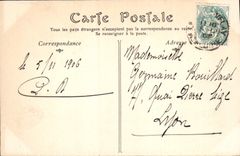 Carte Postale
Tous les pays étrangers n'acceptent pas la correspondance au recto
Se renseigner à la poste.
Correspondance
Adresse
le 5/11 1906
D. A
Mademoiselle
Germaine Bouillard
Quai Pierre Scize
Lyon